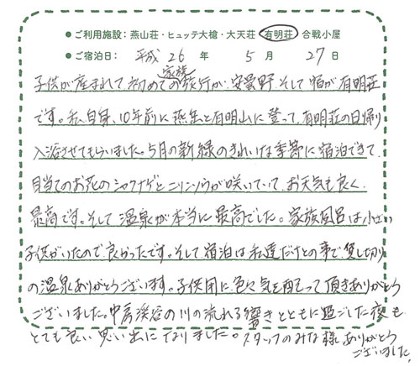 ●ご利用施設：燕山荘・ヒュッテ大槍・大天荘・有明荘・合戦小屋
●ご宿泊日： 平成 26 年 5 月 27 日
子供が産まれて初めての家族旅行が、安曇野そして宿が有明荘
です。私自身、10年前に燕岳と有明山に登って、有明荘の日帰り
入浴させてもらいました。5月の新緑のきれいな季節に宿泊できて、
目当てのお花のシャクナゲとニリンソウが咲いていて、お天気も良く、
最高です。そして温泉が本当に最高でした。家族風呂は小さい
子供がいたので良かったです。そして宿泊は私達だけとの事で貸し切り
の温泉ありがとうございます。子供用に色々気を配って頂きありがとう
ございました。中房渓谷の川の流れる響きとともに過ごした夜も
とても良い思い出になりました。スタッフのみな様ありがとう
ございました。